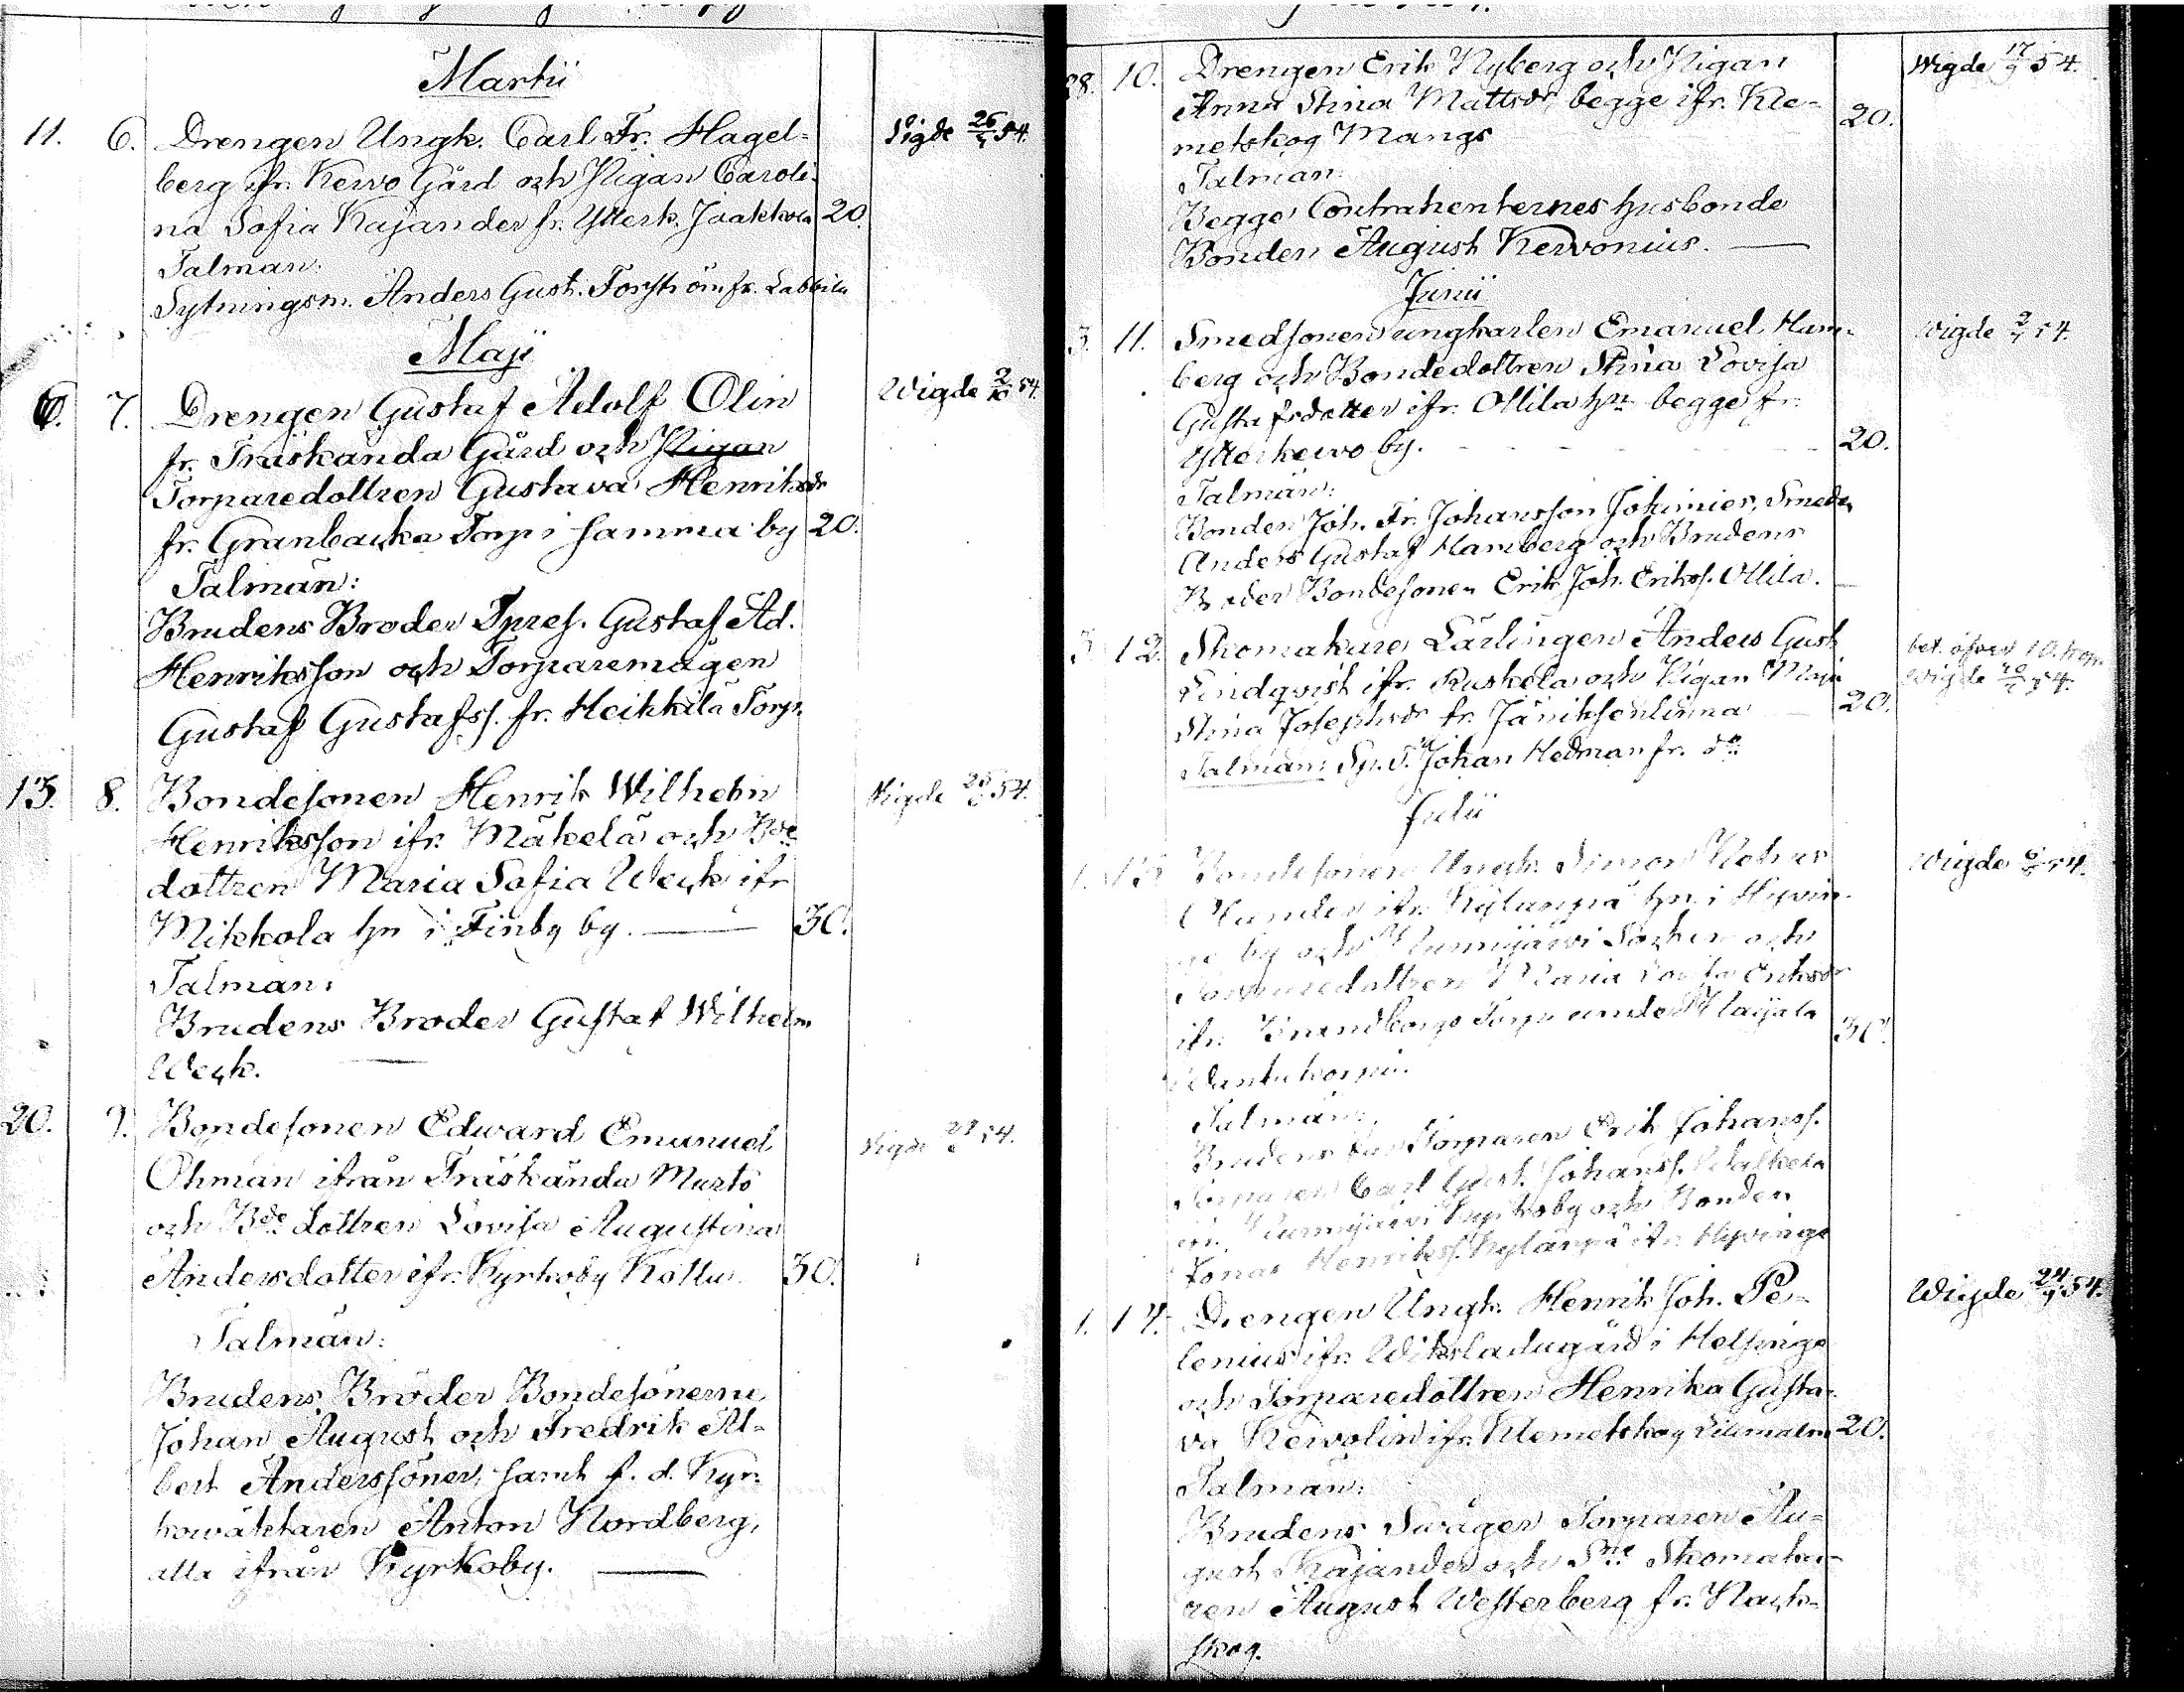 Martii
11. 6. Drengen Ungk. Carl Fr. Hagel- Vigde 26/5 54.
berg ifr. Kervo Gård och Pigan Caroli-
na Sofia Kajander fr. Ytterk. Jaakkola 20.
Talman:
Sytningsm. Anders Gust. Forström fr. Labbila
Maji
6. 7. Drengen Gustaf Adolf Olin Wigde 2/10 54.
fr. Träskända Gård och Pigan
Torparedottren Gustava Henriksdr
fr. Granbacka Torp i samma by 20.
Talmän:
Brudens Broder Gustaf Ad.
Henriksson och Torparemågen
Gustaf Gustafss. fr. Heikkilä Torp.
13. 8. Bondesonen Henrik Wilhelm Vigde 25/6 54.
Henriksson ifr. Mäkelä och Bde
dottren Maria Sofia Weck ifr
Mikkola hn i Finby by. 30.
Talman:
Brudens Broder Gustaf Wilhelm
Weck.
20. 9. Bondesonen Edward Emanuel Vigde 54.
Öhman ifrån Träskända Marts
och Bde dottren Lovisa Augustina
Andersdotter ifr. Kyrkoby Kottu 30.
Talmän:
Brudens Bröder Bondesönerne
Johan August och Fredrik Al-
bert Anderssöner, samt f. d. Kyr-
kowäktaren Anton Nordberg,
alla ifrån Kyrkoby.
28. 10. Drengen Erik Nyberg och Pigan Wigde 17/9 54.
Anna Stina Mattsdr, begge ifr. Kle-
metskog Mangs 20.
Talman:
Begge Contrahenternes husbonde
Bonden August Kervonius.
Junii
3. 11. Smedsonen ungkarlen Emanuel Ham- Wigde 2/7 54.
berg och Bondedottren Stina Lovisa
Gustafsdotter ifr. Ollila hn begge fr.
Ytterkervo by. 20.
Talmän:
Bonden Joh. Fr. Johansson Smeden
Anders Gustaf Hamberg och Brudens
Broder Bondesonen Erik Joh. Erikss. Ollila.
3. 12. Skomakare Lärlingen Anders Gust.
Lindqvist ifr. Ruskela och Pigan Maja Wigde 54.
Stina Josephsdr fr. Jäniksenlinna 20.
Talman: Johan Hedman fr. do
Julii
1. 13. Bondesonen Ungk. Simon Wigde 54.
ifr. Kylänpä hn i Hyvin-
ge by och Nurmijärvi Socken och
Torparedottren Maria Lovisa Eriksdr
ifr. Torp under 30.
Talmän:
Brudens Far Torparen Erik Johanss.
Torparen Carl Gust. Johanss.
Nurmijärvi Kyrkoby och Bonden
Jonas Henrikss. Kylänpä ifr. Hyvinge
1. 14. Drengen Ungk. Henrik Joh. Pe- Wigde 24/9 54.
lenius ifr. Wiksladugård i Helsinge
och Torparedottren Henrika Gusta-
va Kervolin ifr. Klemetskog 20.
Talmän:
Brudens Swåger Torparen Au-
gust Kajander och Skomaka-
ren August Westerberg fr. Nack-
skog.